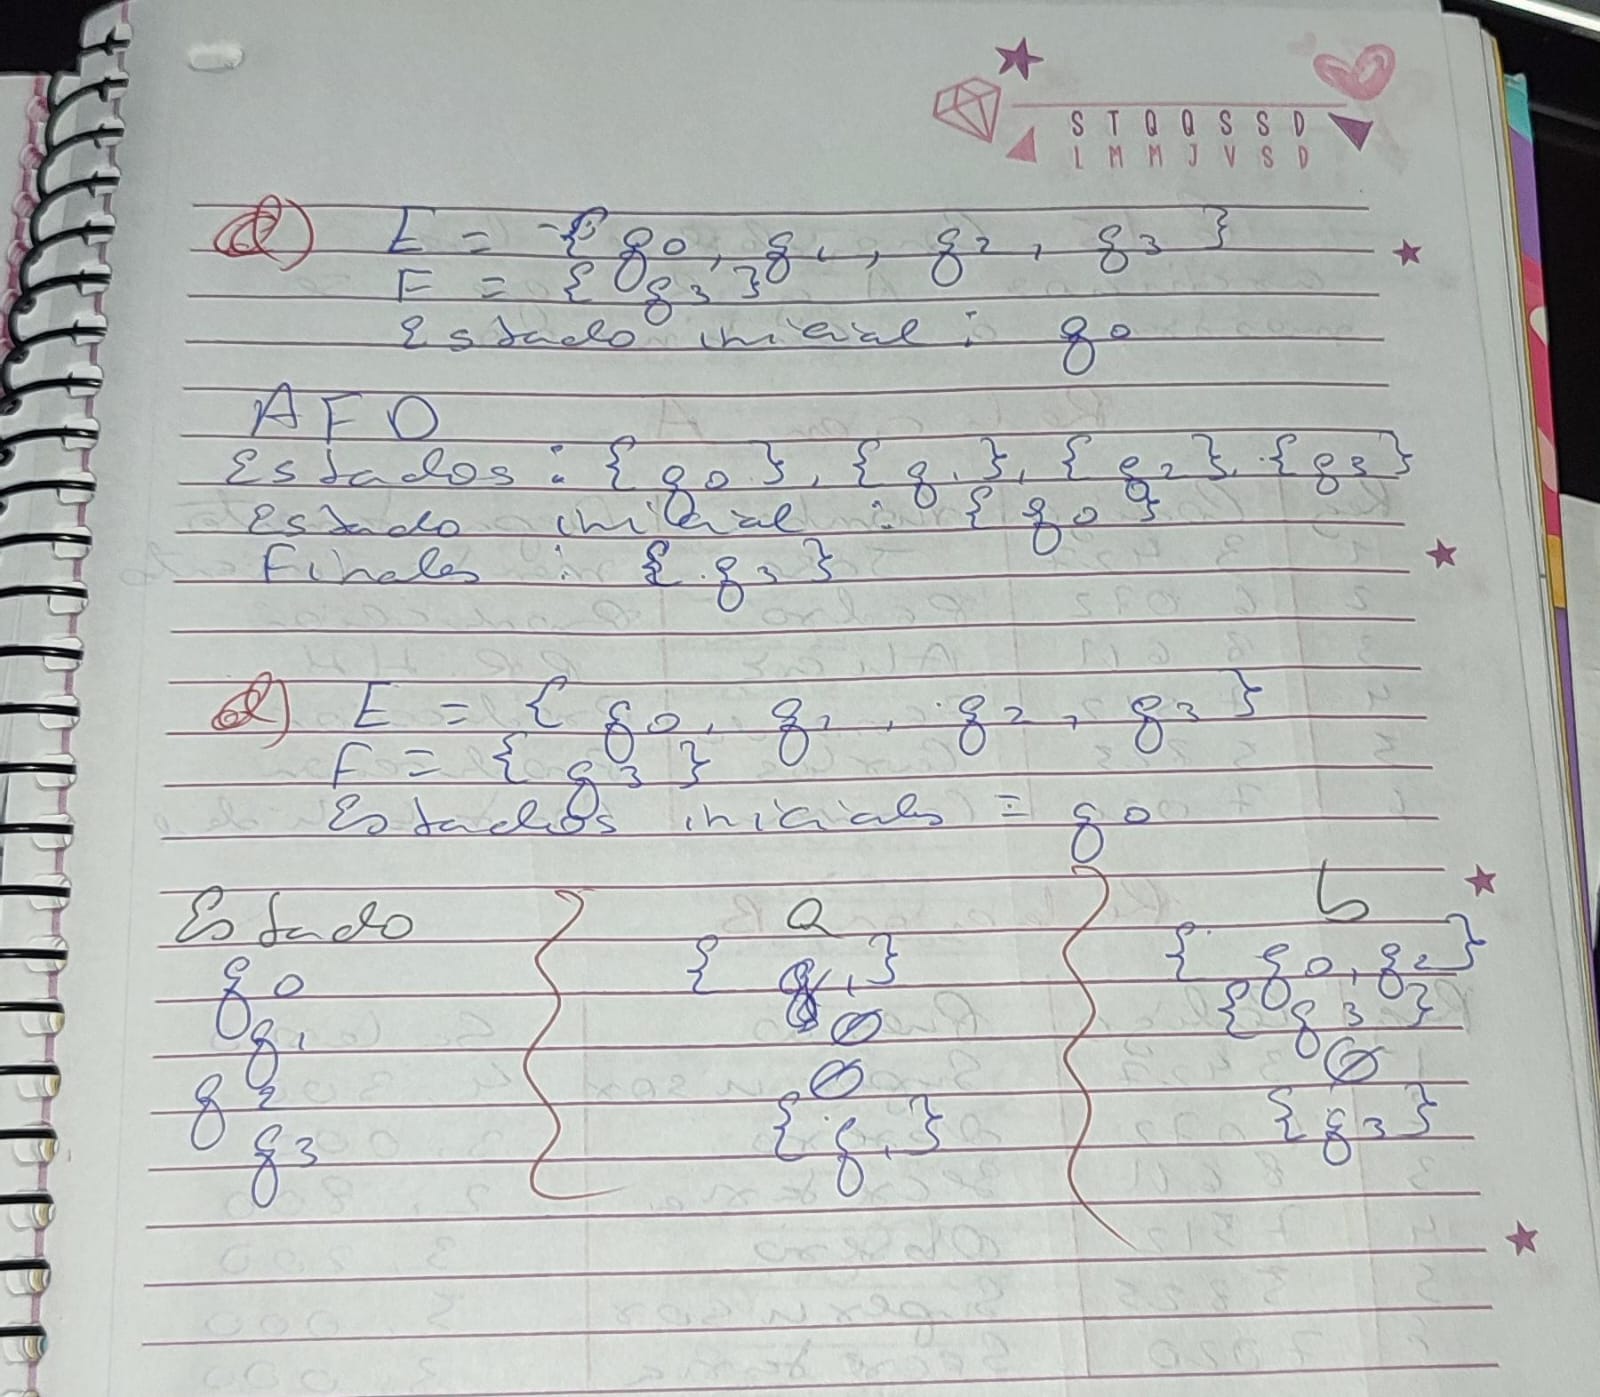 S T Q Q S S D
L M M J V S D
d) E = { q0, q1, q2, q3 }
F = { q3 }
Estado inicial : q0
AFD
Estados : { q0 }, { q1 }, { q2 }, { q3 }
Estado inicial : { q0 }
Finales : { q3 }
d) E = { q0, q1, q2, q3 }
F = { q3 }
Estados iniciales = q0
Estado a b
q0 { q1 } { q0, q2 }
q1 Ø { q3 }
q2 Ø Ø
q3 { q1 } { q3 }